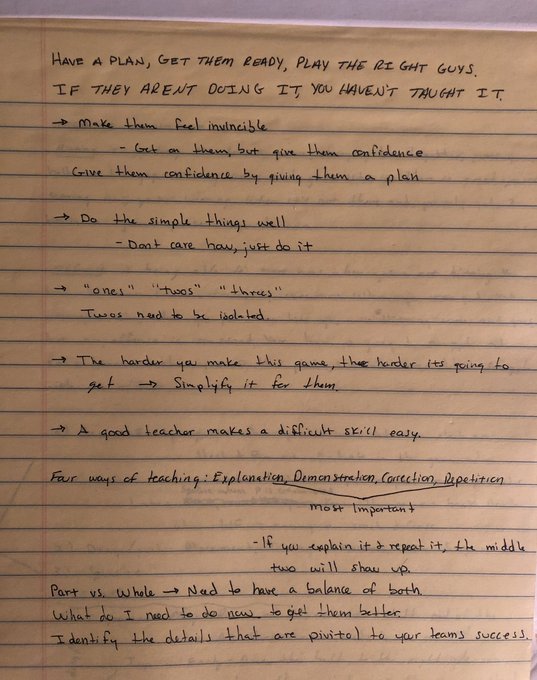 HAVE A PLAN, GET THEM READY, PLAY THE RIGHT GUYS.
IF THEY ARENT DOING IT, YOU HAVEN'T TAUGHT IT.
→ Make them feel invincible
- Get on them, but give them confidence
Give them confidence by giving them a plan
→ Do the simple things well
- Dont care how, just do it
→ "ones" "twos" "threes"
Twos need to be isolated.
→ The harder you make this game, the harder its going to
get → Simplify it for them.
→ A good teacher makes a difficult skill easy.
Four ways of teaching: Explanation, Demonstration, Correction, Repetition
most Important
- If you explain it & repeat it, the middle
two will show up.
Part vs. Whole → Need to have a balance of both.
What do I need to do now to get them better.
Identify the details that are pivitol to your teams success.